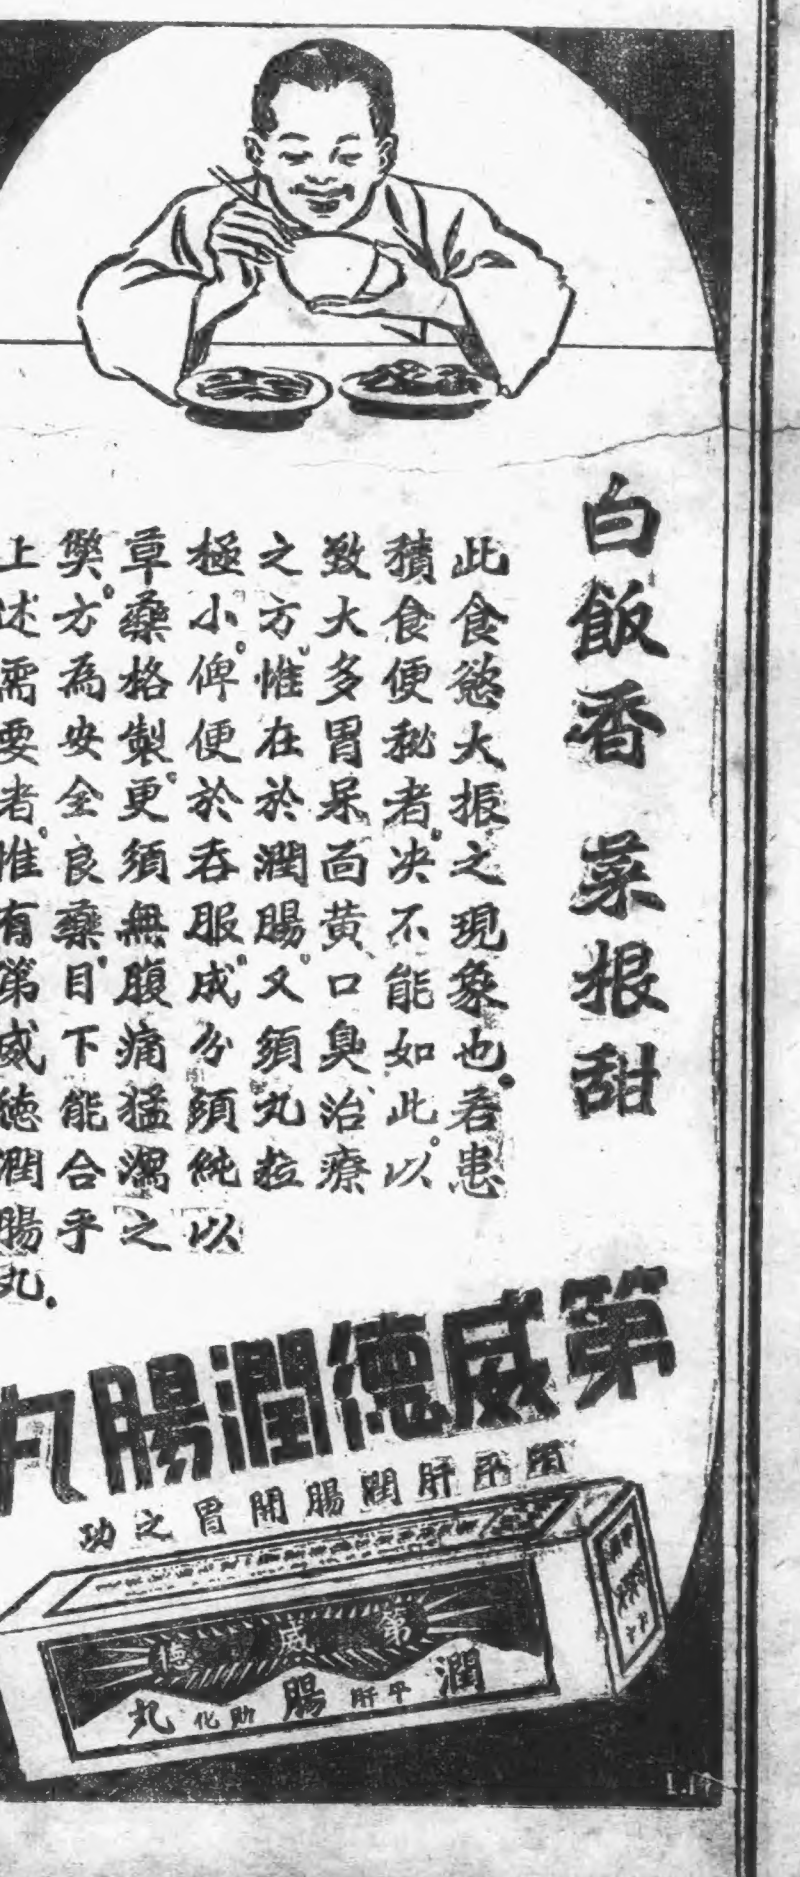 白飯香 菜根甜
此食慾大振之現象也。若患
積食便秘者。決不能如此。以
致大多胃呆面黃、口臭、治療
之方、惟在於潤腸。又須丸粒
極小。俾便於吞服。成分須純以
草藥格製。更須無腹痛猛瀉之
弊。方為安全良藥。目下能合乎
上述需要者。惟有第威德潤腸丸。
第威德潤腸丸
有平肝潤腸開胃之功
第威德
潤腸丸
平肝
助化